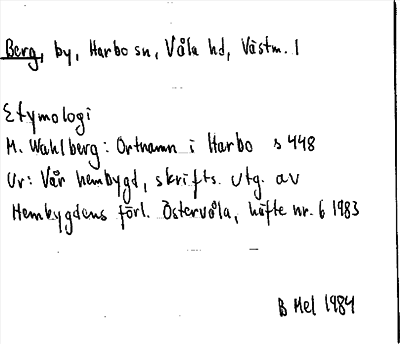 Berg, by, Harbo sn, Våla hd, Västm. l
Etymologi
M. Wahlberg: Ortnamn i Harbo s 448
Ur: Vår hembygd, skrifts. utg. av
Hembygdens förl. Östervåla, häfte nr. 6 1983
B Mel 1984